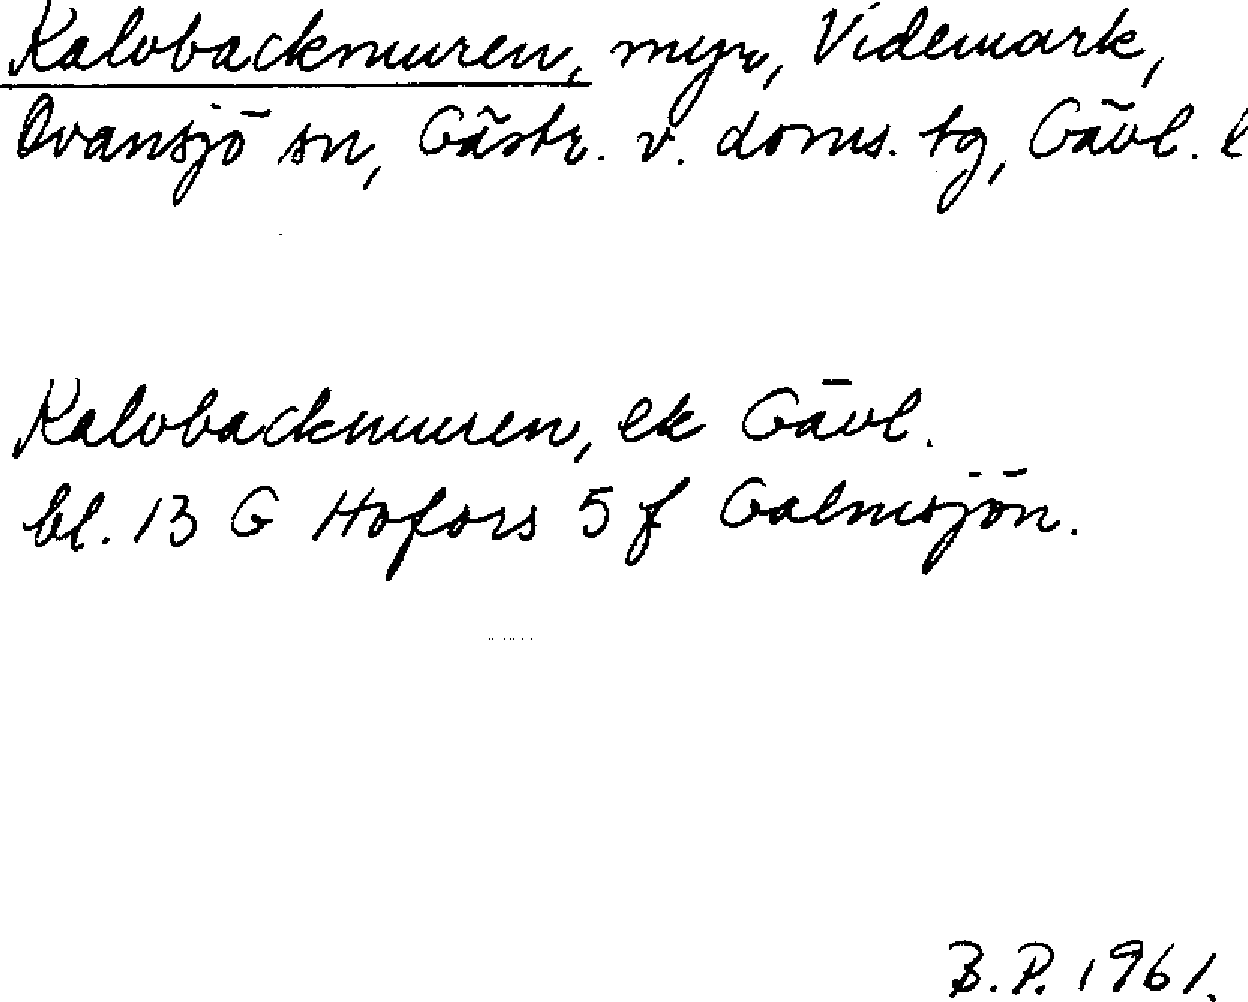 Kalvbackmuren, myr, Videmark,
Ovansjö sn, Gästr. v. doms. tg, Gävl. l
Kalvbackmuren, ek Gävl.
bl. 13 G Hofors 5 f Galmsjön.
B.P. 1961.